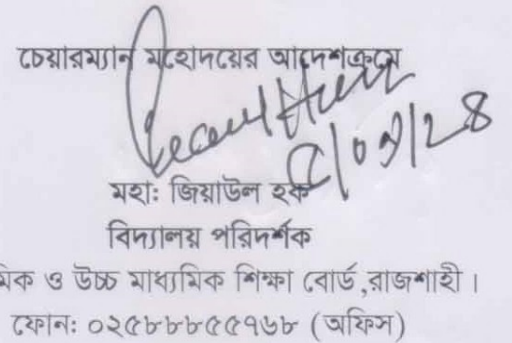 চেয়ারম্যান মহোদয়ের আদেশক্রমে
মহা: জিয়াউল হক
বিদ্যালয় পরিদর্শক
মিক ও উচ্চ মাধ্যমিক শিক্ষা বোর্ড,রাজশাহী।
ফোন: ০২৫৮৮৮৫৫৭৬৮ (অফিস)